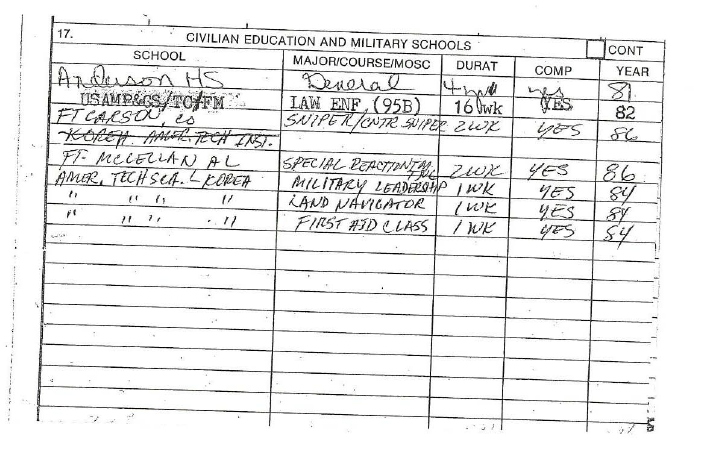 17. CIVILIAN EDUCATION AND MILITARY SCHOOLS CONT
SCHOOL MAJOR/COURSE/MOSC DURAT COMP YEAR
Anderson HS General 4 yes 81
USAMP&CS/TC/FM LAW ENF, (95B) 16 wk YES 82
FT CARSON, CO SNIPER/CNTR SNIPER 2WK YES 86
KOREA AMER. TECH INST.
FT. McLELLAN AL SPECIAL REACTION TM 2WK YES 86
AMER. TECH SCH. - KOREA MILITARY LEADERSHIP 1WK YES 84
" " " " LAND NAVIGATOR 1WK YES 84
" " " " FIRST AID CLASS 1WK YES 84